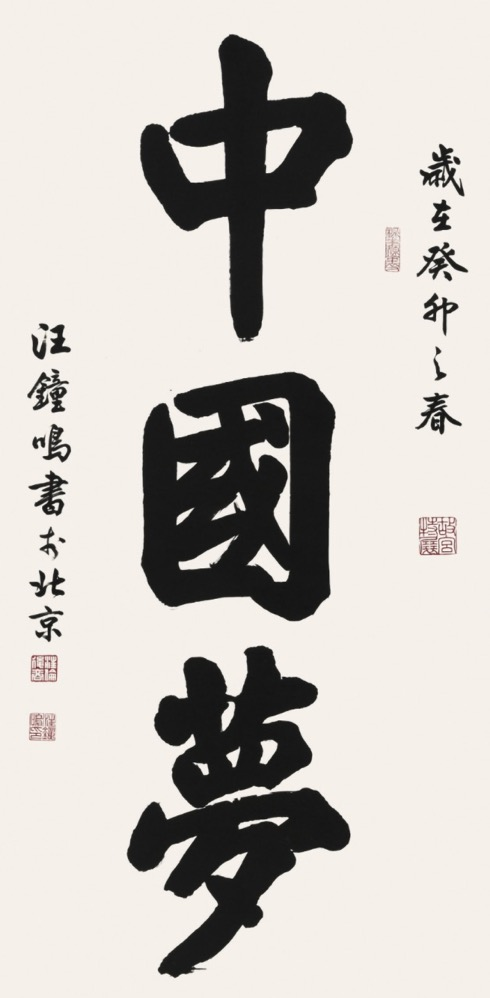 歲在癸卯之春
中國夢
汪鐘鳴書於北京